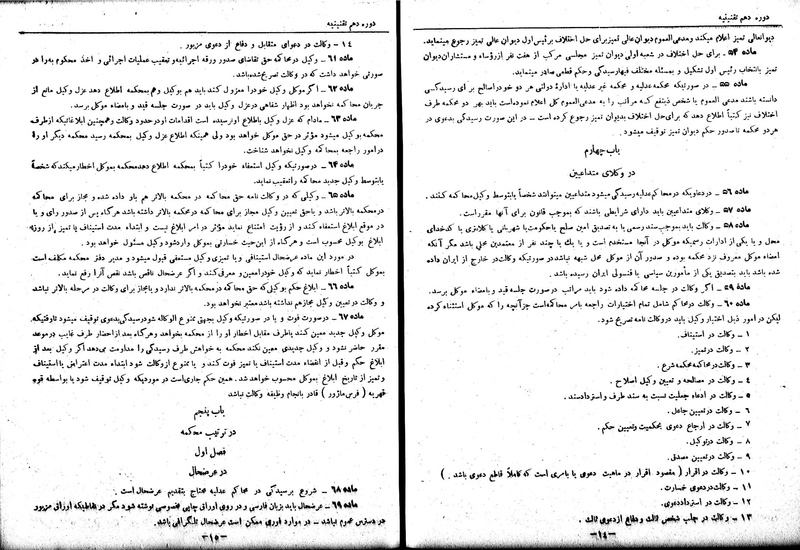 دوره دهم تقنینیه
دیوانعالی تمیز اعلام میکند و مدعی العموم دیوان عالی تمیز برای حل اختلاف برئیس اول دیوان عالی تمیز رجوع مینماید.
ماده ۵۴ ـ برای حل اختلاف در شعبه اولی دیوان تمیز مجلسی مرکب از هفت نفر از رؤساء و مستشاران دیوان
تمیز بانتخاب رئیس اول تشکیل و بمسئله مختلف فیها رسیدگی و حکم قطعی صادر مینماید.
ماده ۵۵ ـ در صورتیکه محکمه عدلیه و محکمه غیر عدلیه یا اداره دولتی هر دو خود را صالح برای رسیدگی
دانسته باشند مدعی العموم یا شخص ذینفع که مراتب را به مدعی العموم کل اعلام نموده است باید بهر دو محکمه طرف
اختلاف نیز کتباً اطلاع دهد که برای حل اختلاف بدیوان تمیز رجوع کرده است ـ در این صورت رسیدگی بدعوی در
هر دو محکمه تا صدور حکم دیوان تمیز توقیف میشود .
باب چهارم
در وکلای متداعیین
ماده ۵۶ ـ در دعاویکه در محاکم عدلیه رسیدگی میشود متداعیین میتوانند شخصاً یا بتوسط وکیل محاکمه کنند .
ماده ۵۷ ـ وکلای متداعیین باید دارای شرایطی باشند که بموجب قانون برای آنها مقرر است .
ماده ۵۸ ـ وکالت باید بموجب سند رسمی یا به تصدیق امین صلح یا حکومت یا شهربانی یا کلانتری یا کدخدای
محل و یا یکی از ادارات رسمیکه موکل در آنجا مستخدم است و یا یک یا چند نفر از معتمدین محلی باشد مگر آنکه
امضاء موکل معروف نزد محکمه بوده و صدور آن از موکل محل شبهه نباشد در صورتیکه وکالت در خارج از ایران داده
شده باشد باید بتصدیق یکی از مأمورین سیاسی یا قنسولی ایران رسیده باشد .
ماده ۵۹ ـ اگر وکالت در جلسه محاکمه داده شود باید مراتب در صورت جلسه قید و بامضاء موکل برسد .
ماده ۶۰ ـ وکالت در محاکم شامل تمام اختیارات راجعه بامر محاکمه است جز آنچه را که موکل استثناء کرده
لیکن در امور ذیل اختیار وکیل باید در وکالت نامه تصریح شود.
۱ ـ وکالت در استیناف .
۲ ـ وکالت در تمیز .
۳ ـ وکالت در محاکمه محکمه شرع .
۴ ـ وکالت در مصالحه و تعیین وکیل اصلاح .
۵ ـ وکالت در ادعاء جعلیت نسبت به سند طرف و استرداد سند .
۶ ـ وکالت در تعیین جاعل .
۷ ـ وکالت در ارجاع دعوی بحکمیت و تعیین حکم .
۸ ـ وکالت در توکیل .
۹ ـ وکالت در تعیین مصدق .
۱۰ ـ وکالت در اقرار ( مقصود اقرار در ماهیت دعوی یا بامری است که کاملاً قاطع دعوی باشد . )
۱۱ ـ وکالت در دعوی خسارت .
۱۲ ـ وکالت در استرداد دعوی .
۱۳ ـ وکالت در جلب شخص ثالث و دفاع از دعوی ثالث .
ـ۱۴ـ
دوره دهم تقنینیه
۱۴ ـ وکالت در دعوای متقابل و دفاع از دعوی مزبور .
ماده ۶۱ ـ وکیل در محاکمه حق تقاضای صدور ورقه اجرائیه و تعقیب عملیات اجرائی و اخذ محکوم به را در
صورتی خواهد داشت که در وکالت تصریح شده باشد.
ماده ۶۲ ـ اگر موکل وکیل خود را معزول کند باید هم بوکیل و هم بمحکمه اطلاع دهد عزل وکیل مانع از
جریان محاکمه نخواهد بود اظهار شفاهی در عزل وکیل باید در صورت جلسه قید و بامضاء موکل برسد.
ماده ۶۳ ـ مادام که عزل وکیل باطلاع او نرسیده است اقدامات او در حدود وکالت و همچنین ابلاغاتیکه از طرف
محکمه بوکیل میشود مؤثر در حق موکل خواهد بود ولی همینکه اطلاع عزل وکیل بمحکمه رسید محکمه دیگر او را
در امور راجعه بمحاکمه وکیل نخواهد شناخت.
ماده ۶۴ ـ در صورتیکه وکیل استعفاء خود را کتباً بمحکمه اطلاع دهد محکمه بموکل اخطار میکند که شخصاً
یا بتوسط وکیل جدید محاکمه را تعقیب نماید.
ماده ۶۵ ـ وکیلی که در وکالت نامه حق محاکمه در محکمه بالاتر هم باو داده شده و مجاز برای محاکمه
در محکمه بالاتر باشد و یا حق تعیین وکیل مجاز برای محاکمه در محکمه بالاتر داشته باشد هر گاه پس از صدور رای و یا
در موقع ابلاغ استعفاء کنند و از رؤیت امتناع نماید مؤثر در امر ابلاغ نیست و ابتداء مدت استیناف یا تمیز از روزیه
ابلاغ بوکیل محسوب است و هرگاه از این حیث خسارتی بموکل وارد شود وکیل مسئول خواهد بود .
در مورد این ماده عرضحال استینافی و یا تمیزی وکیل مستعفی قبول میشود و مدیر دفتر محکمه مکلف است
بموکل کتباً اخطار نماید که وکیل خود را معین و معرفی کنند و اگر عرضحال ناقص باشد نقص آنرا رفع نماید.
ماده ۶۶ ـ ابلاغ حکم بوکیلی که حق محاکمه در محکمه بالاتر ندارد و یا مجاز برای وکالت در مرحله بالاتر نباشد
و وکالت در تعیین وکیل مجاز هم نداشته باشد معتبر نخواهد بود.
ماده ۶۷ ـ در صورت فوت و یا در صورتیکه وکیل بجهتی ممنوع الوکاله شود رسیدگی بدعوی توقیف میشود تا وقتیکه
موکل وکیل جدید معین کنند یا طرف مقابل اخطار او را از محکمه بخواهد و هرگاه بعد از احضار طرف غایب در موعد
مقرر حاضر نشود و وکیل جدیدی معین نکند محکمه به خواهش طرف رسیدگی را مداومت میدهد اگر وکیل بعد از
ابلاغ حکم و قبل از انقضاء مدت استیناف یا تمیز فوت کند و یا ممنوع از وکالت شود ابتداء مدت اعتراض یا استیناف
و تمیز از تاریخ ابلاغ بموکل محسوب خواهد شد . همین حکم جاری است در موردیکه وکیل توقیف شود یا بواسطه قوه
قهریه ( فرس ماژور ) قادر بانجام وظیفه وکالت نباشد
باب پنجم
در ترتیب محاکمه
فصل اول
در عرضحال
ماده ۶۸ ـ شروع برسیدگی در محاکم عدلیه محتاج بتقدیم عرضحال است .
ماده ۶۹ ـ عرضحال باید بزبان فارسی و در روی اوراق چاپی مخصوصی نوشته شود مگر در نقاطیکه اوراق مزبور
در دسترس عموم نباشد ـ در موارد فوری ممکن است عرضحال تلگرافی باشد.
ـ۱۵ـ